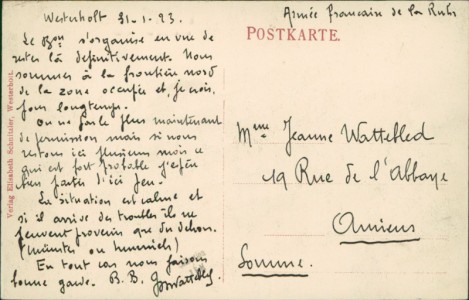 Westerholt 31-1-23.
Le Bon s'organise en vue de
rester là définitivement. Nous
sommes à la frontière nord
de la zone occupée et, je crois,
pour longtemps.
On ne parle plus maintenant
de permission mais si nous
restons ici plusieurs mois ce
qui est fort probable j'espère
bien partir d'ici peu.
La situation est calme et
si il arrive des troubles ils ne
peuvent provenir que du dehors.
(Münster ou
En tout cas nous faisons
bonne garde. B. B. Wattebled
Verlag Elisabeth Westerholt.
Armée française de la Ruhr
POSTKARTE.
Mme Jeanne Wattebled
19 Rue de l'Abbaye
Amiens
Somme.